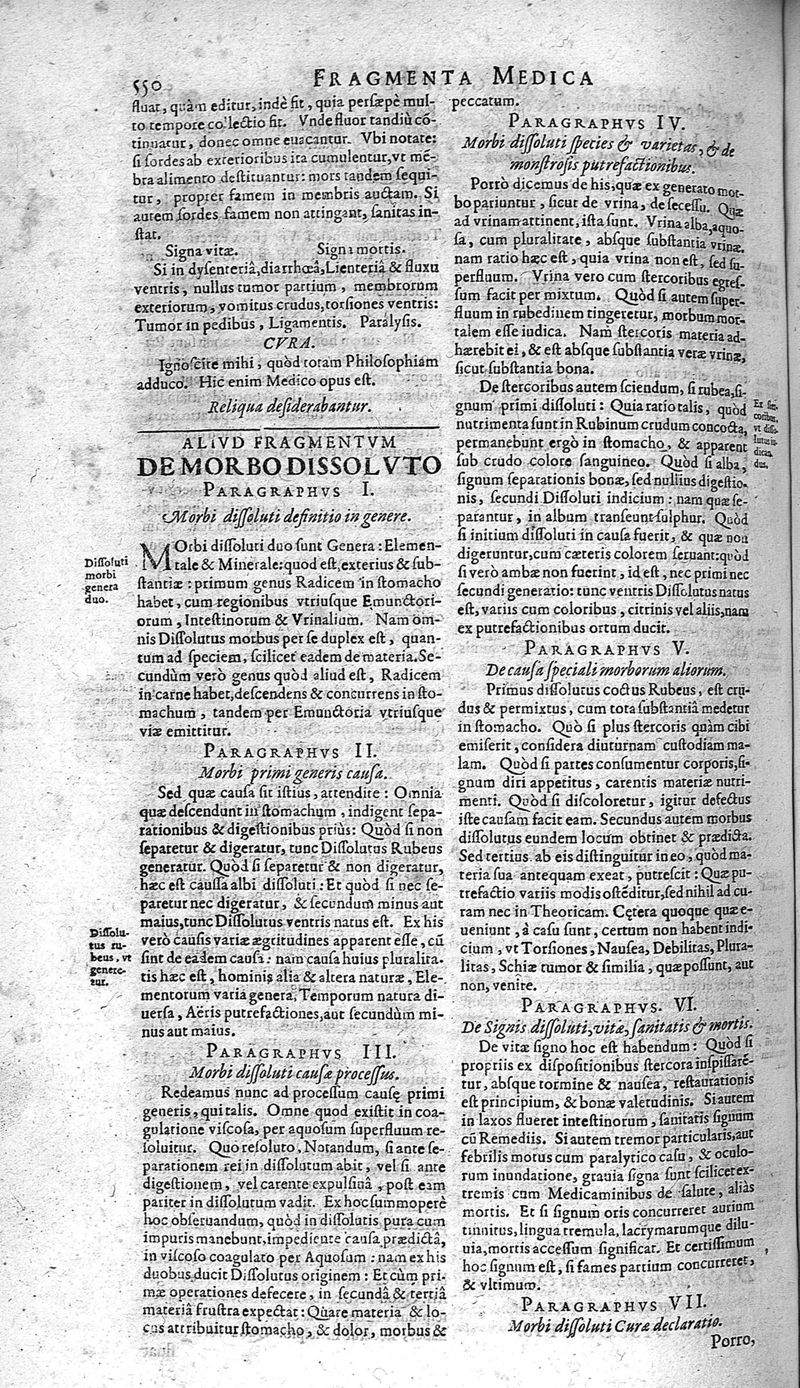 550
FRAGMENTA MEDICA
fluat, quàm editur, indè fit, quia persæpè mul-
to tempore collectio fit. Vnde fluor tandiù cō-
tinuatur, donec omne euacuantur. Vbi notate:
si sordes ab exterioribus ita cumulentur, vt mē-
bra alimento destituantur: mors tandem sequi-
tur, propter famem in membris auctam. Si
autem sordes famem non attingant, sanitas in-
stat.
Signa vitæ. Signa mortis.
Si in dysenteriâ, diarrhœâ, Lienteriâ & fluxu
ventris, nullus tumor partium, membrorum
exteriorum, vomitus crudus, torsiones ventris:
Tumor in pedibus, Ligamentis. Paralysis.
CVRA.
Ignoscite mihi, quòd totam Philosophiam
adduco. Hic enim Medico opus est.
Reliqua desiderabantur.
ALIVD FRAGMENTVM
DE MORBO DISSOLVTO
PARAGRAPHVS I.
Morbi dissoluti definitio in genere.
Dissoluti
morbi
genera
duo.
MOrbi dissoluti duo sunt Genera: Elemen-
tale & Minerale: quod est, exterius & sub-
stantiæ: primum genus Radicem in stomacho
habet, cum regionibus vtriusque Emunctori-
orum, Intestinorum & Vrinalium. Nam om-
nis Dissolutus morbus per se duplex est, quan-
tum ad speciem, scilicet eadem de materia. Se-
cundùm verò genus quod aliud est, Radicem
in carne habet, descendens & concurrens in sto-
machum, tandem per Emunctoria vtriusque
viæ emittitur.
PARAGRAPHVS II.
Morbi primi generis causa.
Sed quæ causa sit istius, attendite: Omnia
quæ descendunt in stomachum, indigent sepa-
rationibus & digestionibus priùs: Quòd si non
separetur & digeratur, tunc Dissolutus Rubeus
generatur. Quòd si separetur & non digeratur,
hæc est caussa albi dissoluti: Et quòd si nec se-
paretur nec digeratur, & secundum minus aut
maius, tunc Dissolutus ventris natus est. Ex his
Dissolu-
tus ru-
beus, vt
genere-
tur.
verò causis variæ ægritudines apparent esse, cū
sint de eadem causa: nam causa huius pluralita-
tis hæc est, hominis alia & altera naturæ, Ele-
mentorum varia genera, Temporum natura di-
uersa, Aëris putrefactiones, aut secundùm mi-
nus aut maius.
PARAGRAPHVS III.
Morbi dissoluti causæ processus.
Redeamus nunc ad processum causę primi
generis, qui talis. Omne quod existit in coa-
gulatione viscosa, per aquosum superfluum re-
soluitur. Quo resoluto, Notandum, si ante se-
parationem rei in dissolutum abit, vel si ante
digestionem, vel carente expulsiuâ, post eam
pariter in dissolutum vadit. Ex hoc summoperè
hoc obseruandum, quòd in dissolutis pura cum
impuris manebunt, impediente causa prædictâ,
in viscoso coagulato per Aquosum: nam ex his
duobus ducit Dissolutus originem: Et cùm pri-
mæ operationes defecere, in secundâ & tertiâ
materiâ frustra expectat: Quare materia & lo-
cus attribuitur stomacho, & dolor, morbus &
peccatum.
PARAGRAPHVS IV.
Morbi dissoluti species & varietas, & de
monstrosis putrefactionibus.
Porrò dicemus de his, quæ ex generato mor-
bo pariuntur, sicut de vrina, de secessu. Quæ
ad vrinam attinent, ista sunt. Vrina alba, aquo-
sa, cum pluralitate, absque substantia vrinæ.
nam ratio hæc est, quia vrina non est, sed su-
perfluum. Vrina vero cum stercoribus egres-
sum facit per mixtum. Quòd si autem super-
fluum in rubedinem tingeretur, morbum mor-
talem esse iudica. Nam stercoris materia ad-
hærebit ei, & est absque substantia veræ vrinæ,
sicut substantia bona.
De stercoribus autem sciendum, si rubea, si-
gnum primi dissoluti: Quia ratio talis, quòd
nutrimenta sunt in Rubinum crudum concocta,
permanebunt ergò in stomacho, & apparent
sub crudo colore sanguineo. Quòd si alba,
signum separationis bonæ, sed nullius digestio-
nis, secundi Dissoluti indicium: nam quæ se-
parantur, in album transeunt sulphur. Quòd
si initium dissoluti in causa fuerit, & quæ non
digeruntur, cum cæteris colorem seruant: quòd
si verò ambæ non fuerint, id est, nec primi nec
secundi generatio: tunc ventris Dissolutus natus
est, variis cum coloribus, citrinis vel aliis, nam
ex putrefactionibus ortum ducit.
PARAGRAPHVS V.
De causa speciali morborum aliorum.
Primus dissolutus coctus Rubeus, est cru-
dus & permixtus, cum tota substantiâ medetur
in stomacho. Quò si plus stercoris quàm cibi
emiserit, considera diuturnam custodiam ma-
lam. Quòd si partes consumentur corporis, si-
gnum diri appetitus, carentis materiæ nutri-
menti. Quòd si discoloretur, igitur defectus
iste causam facit eam. Secundus autem morbus
dissolutus eundem locum obtinet & prædicta.
Sed tertius ab eis distinguitur in eo, quòd ma-
teria sua antequam exeat, putrescit: Quæ pu-
trefactio variis modis ostēditur, sed nihil ad cu-
ram nec in Theoricam. Cętera quoque quæ e-
ueniunt, à casu sunt, certum non habent indi-
cium, vt Torsiones, Nausea, Debilitas, Plura-
litas, Schiæ tumor & similia, quæ possunt, aut
non, venire.
PARAGRAPHVS. VI.
De Signis dissoluti, vitæ, sanitatis & mortis.
De vitæ signo hoc est habendum: Quòd si
propriis ex dispositionibus stercora inspissarē-
tur, absque tormine & nausea, restaurationis
est principium, & bonæ valetudinis. Si autem
in laxos flueret intestinorum, sanitatis signum
cū Remediis. Si autem tremor particularis, aut
febrilis motus cum paralytico casu, & oculo-
rum inundatione, grauia signa sunt scilicet ex-
tremis cum Medicaminibus de salute, aliàs
mortis. Et si signum oris concurreret aurium
tinnitus, lingua tremula, lacrymarumque dilu-
uia, mortis accessum significat. Et certissimum
hoc signum est, si fames partium concurreret,
& vltimum.
PARAGRAPHVS VII.
Morbi dissoluti Curæ declaratio.
Porro,